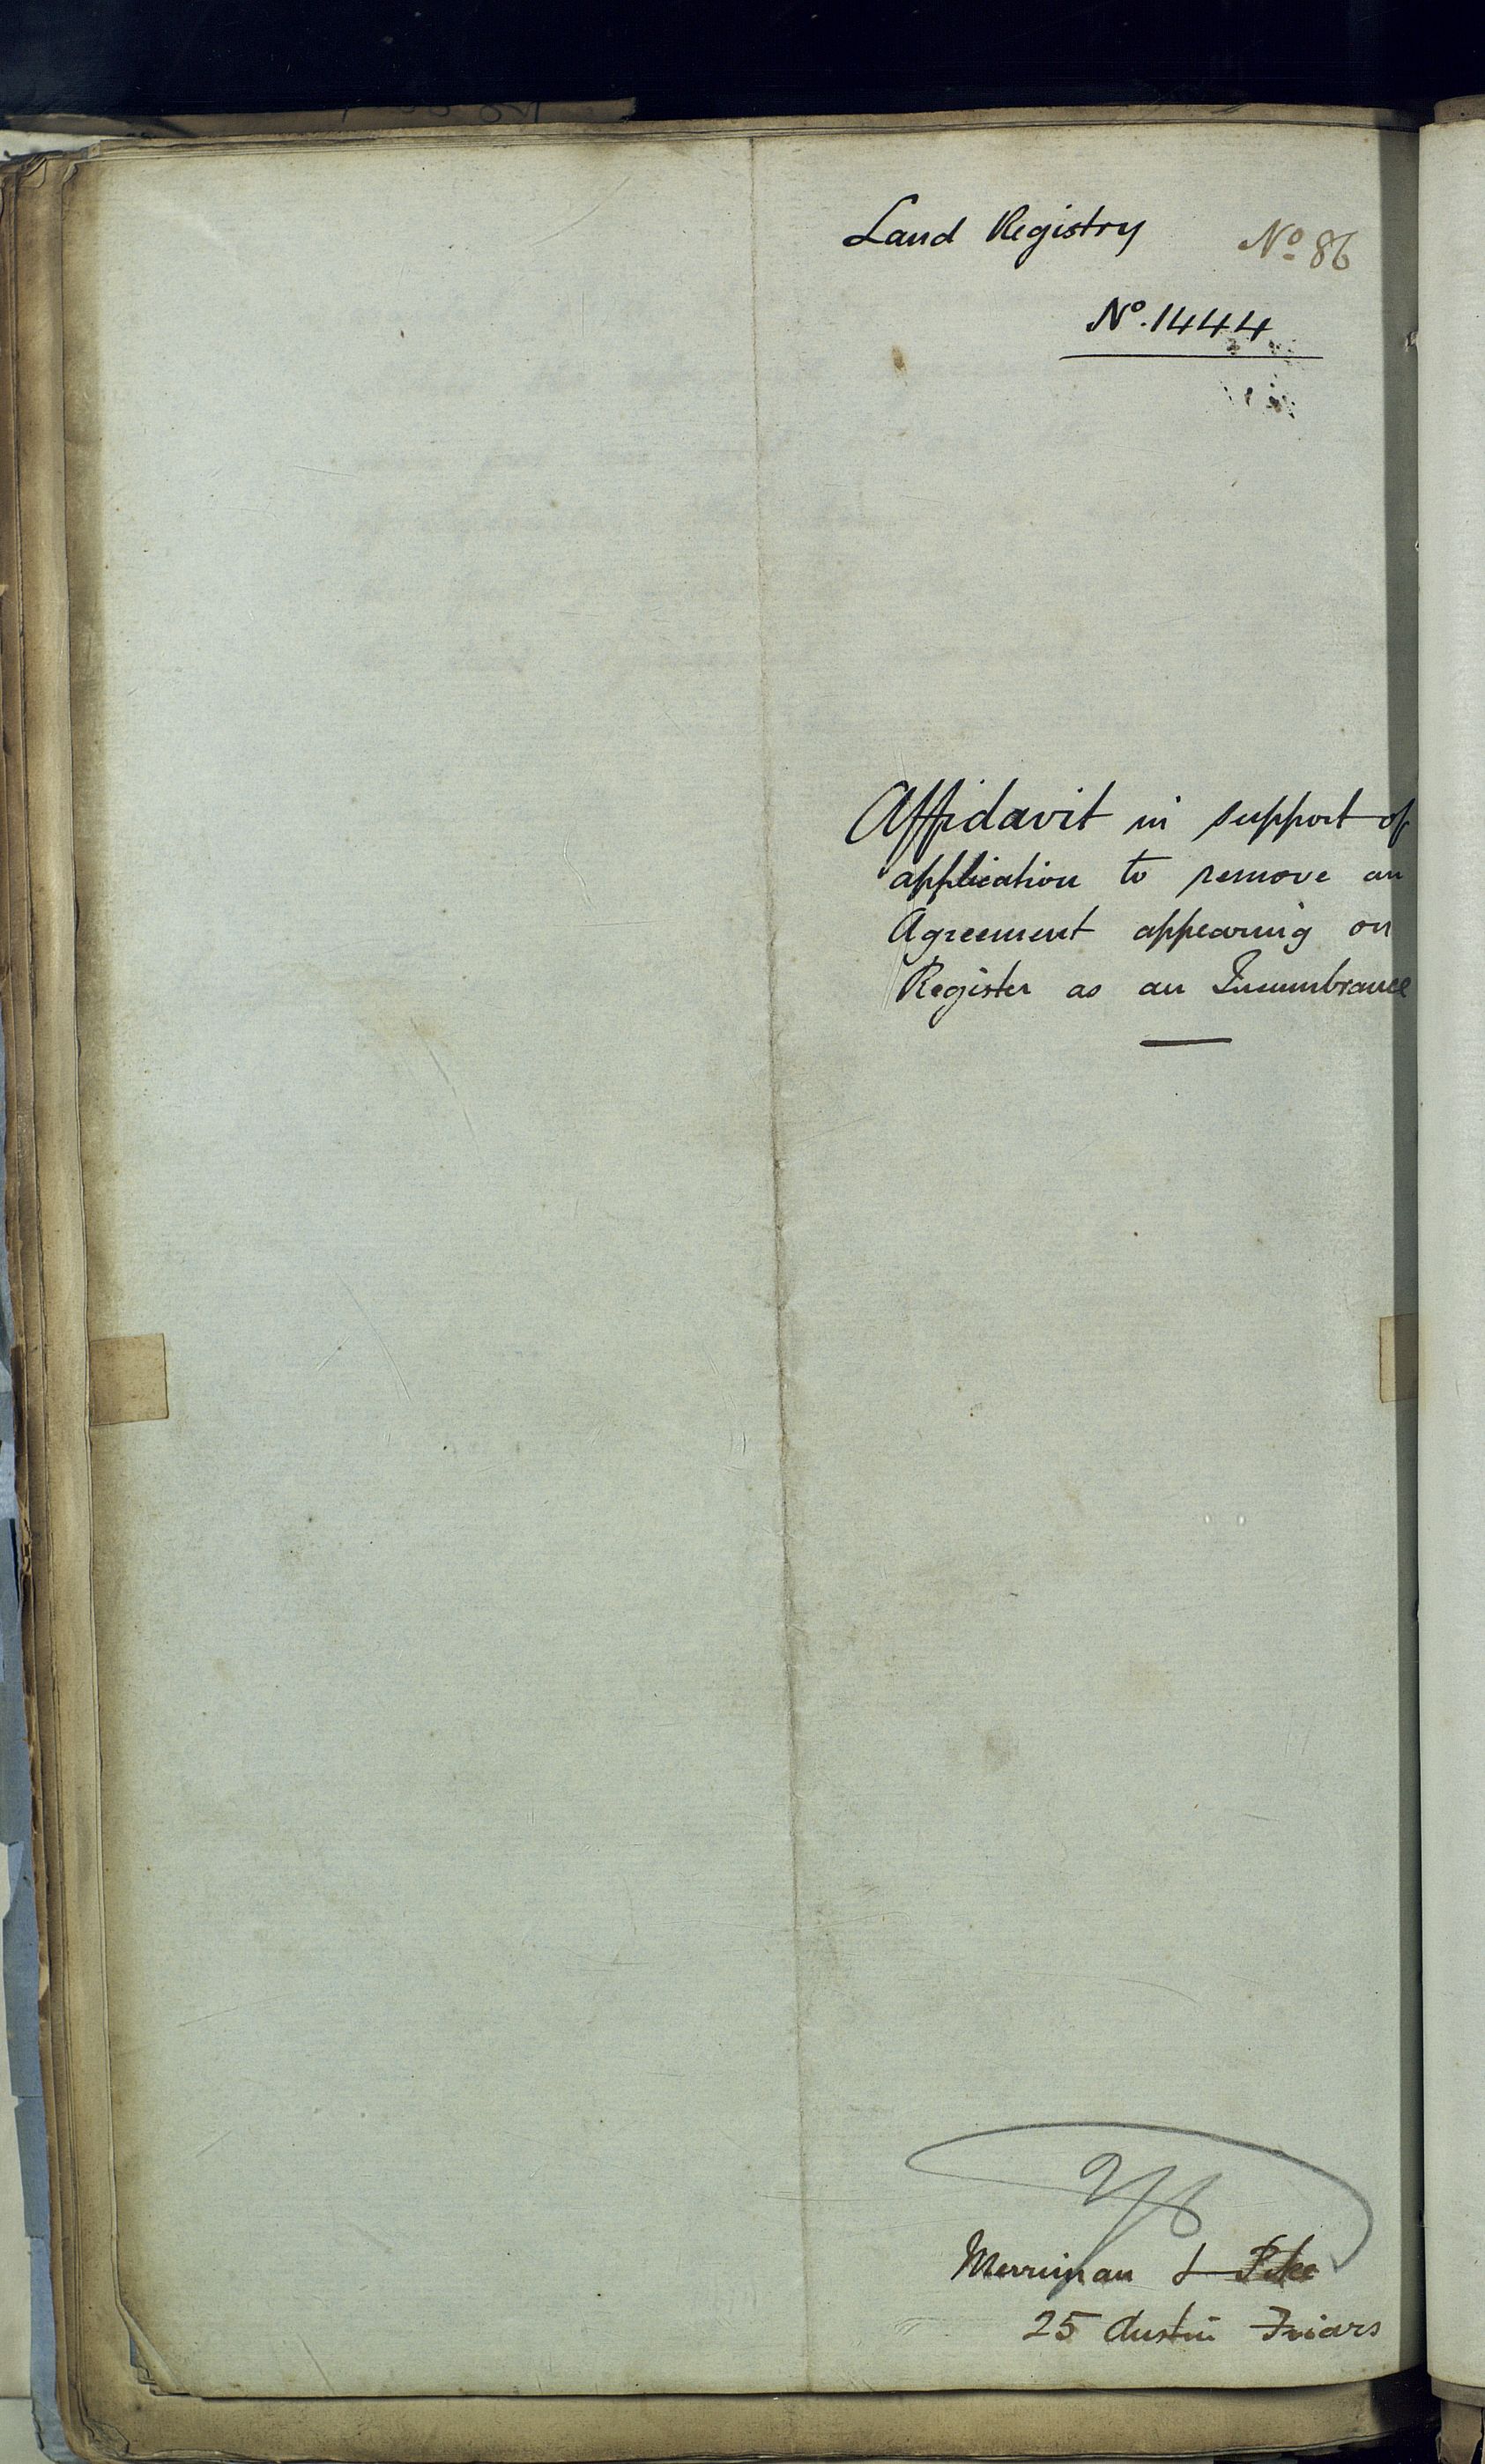 Land Registry
Nº 86
Nº. 1444
Affidavit in support of
application to remove an
Agreement appearing on
Register as an Incumbrance
Merriman & Pike
25 Austin Friars